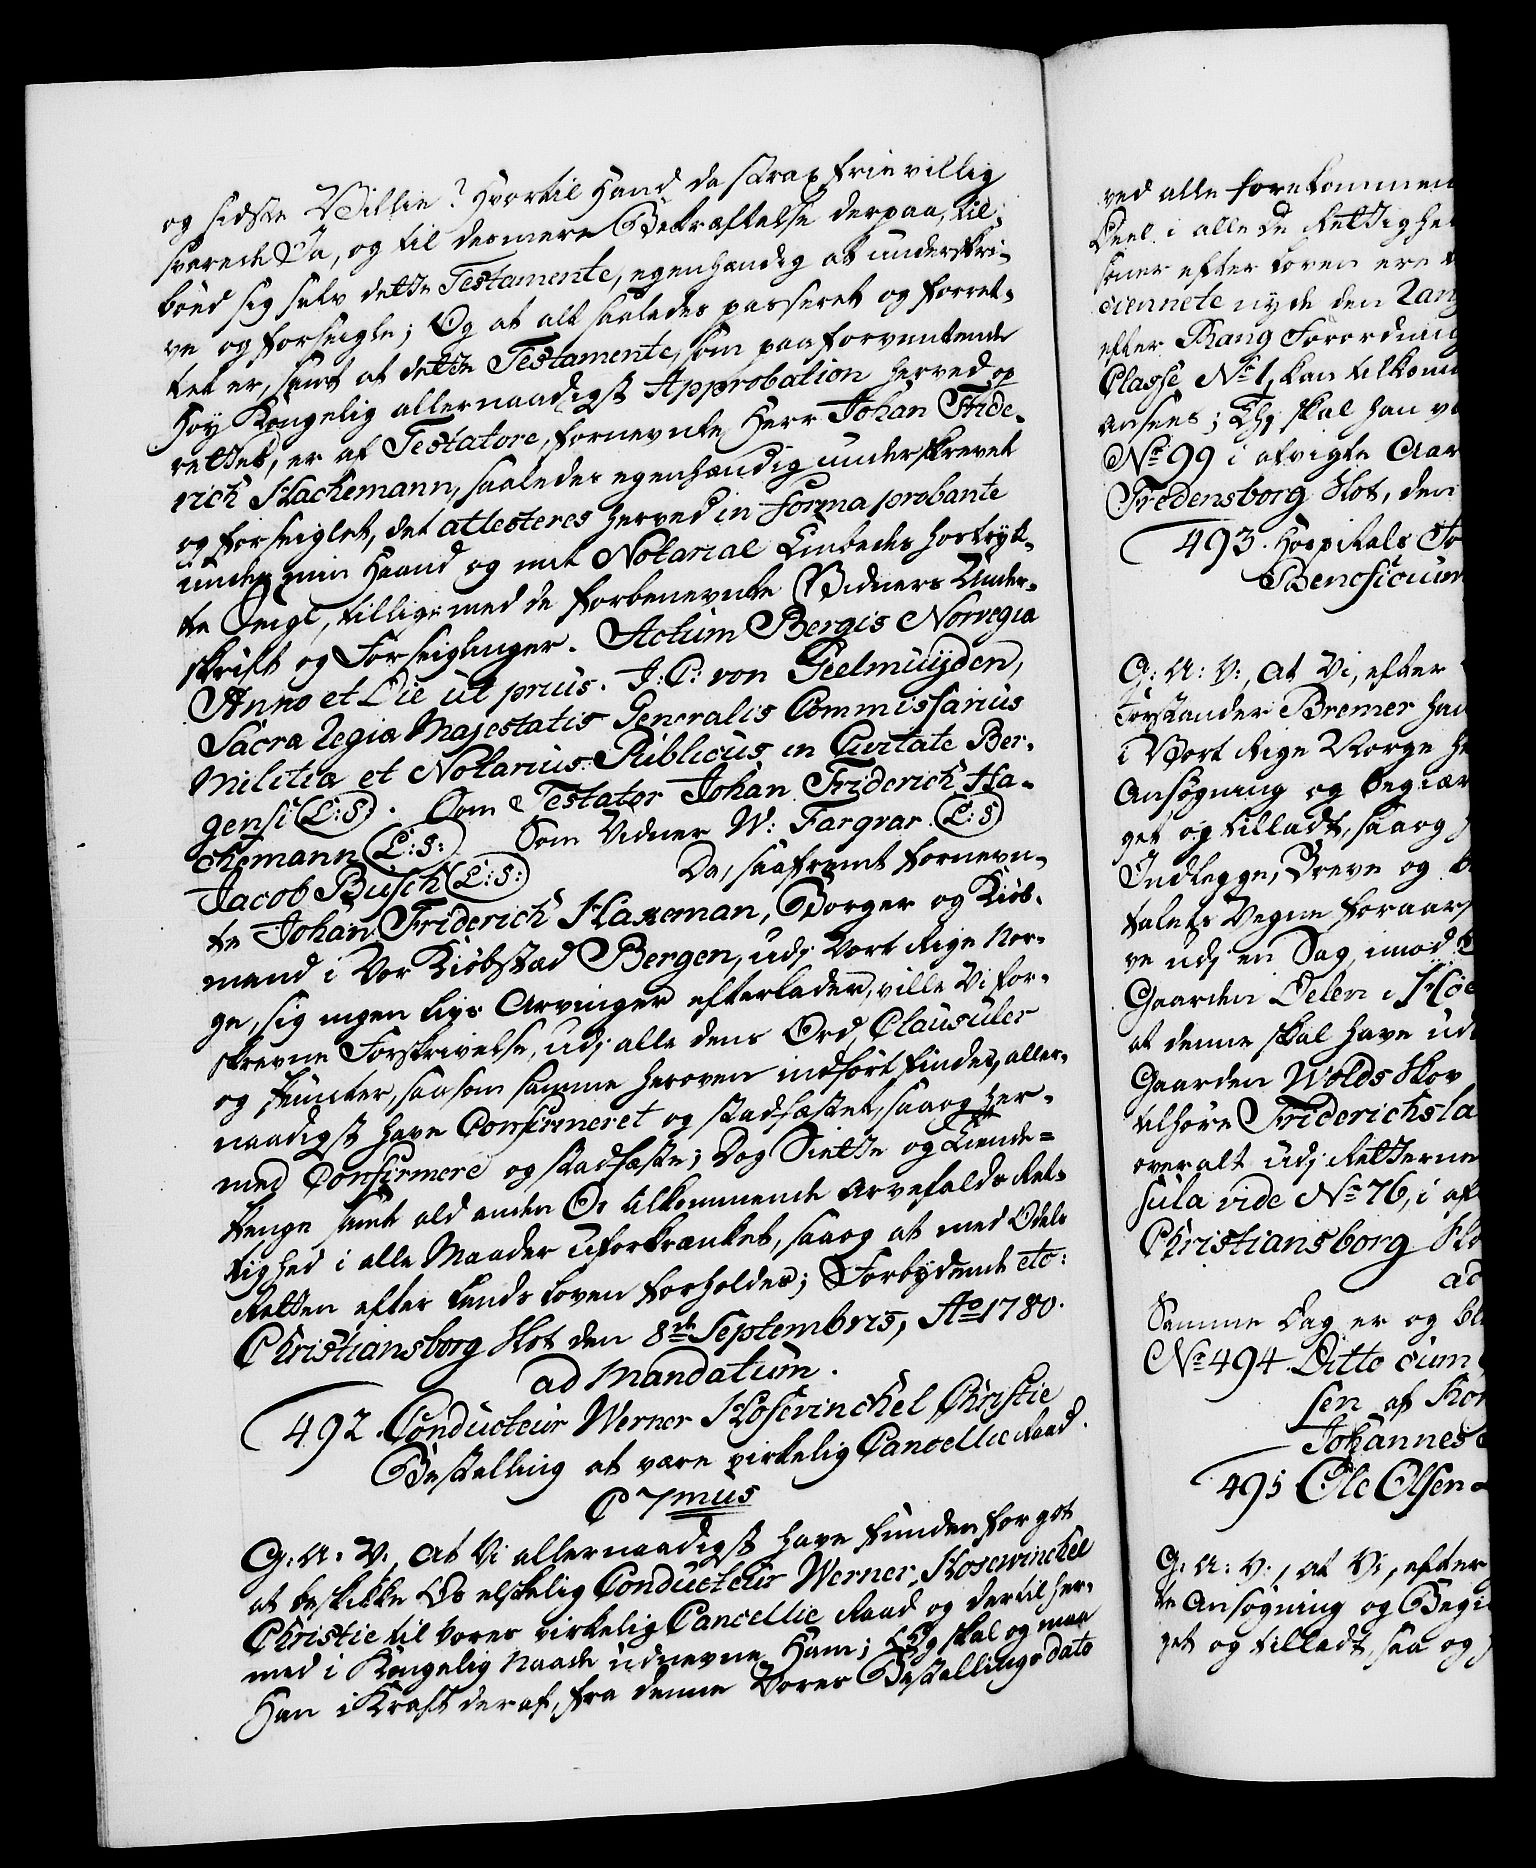 og sidste Villie? Hvortil Hand da strax frievillig
svarede Ja, og til desmere Bekræftelse derpaa, til-
böed sig selv dette Testamente, egenhændig at underskri-
ve og forseigle; Og at alt saaledes passeret og forret-
tet er, samt at dette Testamente, som paa forventende
Høy Kongelig allernaadigst Approbation herved op
rettet, er af Testatore, fornevnte Herr Johan Fride-
rich Hackemann, saaledes egenhændig underskrevet
og forseiglet, det attesteres herved in forma probante
under min Haand og mit Notarial Embedes hostryk-
te Seigl, tillige med de forbenevnte Vidners Under-
skrift og Forseiglinger. Actum Bergis Norvegia
Anno et Die ut prius. J: C: von Geelmuijden,
Sacra Regia Majestatis Generalis Commissarius
Militia et Notarius Publicus in Civitate Ber-
gensi (L:S:). Som Testator Johan Friderich Ha-
ckemann (L:S:) Som Vidner W: Fargrar (L:S)
Jacob Busch (L:S:) Da, saafremt fornevn-
te Johan Friderich Hakeman, Borger og Kiøb-
mand i Vor Kiøbstad Bergen, udj Vort Rige Nor-
ge, sig ingen Livs Arvinger efterlader, ville Vi for-
skrevne Forskrivelse, udj alle dens Ord, Clausuler
og Puncter, saasom samme heroven indført findes, aller-
naadigst have Confirmeret og stadfæstet, saa og her-
med Confirmere og stadfæste; Dog Siette og Tiende-
Penge samt ald anden Os tilkommende Arvefalds Ret-
tighed i alle Maader uforkrænket, saa og at med Odels
Retten efter Lands Loven forholdes; Forbydende etc:
Christiansborg Slot den 8de Septembris, Ao 1780.
ad Mandatum.
492. Conducteur Werner Hosevinckel Christie
Bestalling at være virkelig Cancellie Raad.
C 7mus
G: A: V:, At Vi allernaadigst have funden for got
at beskikke Os elskelig Conducteur Werner Hosewinckel
Christie til Vores virkelig Cancellie Raad og dertil her-
med i Kongelig Naade udnevne Ham; Thj skal og maa
Han i Kraft deraf, fra denne Vores Bestallings dato
ved alle forekommen
Deel i alle de Rettighe
soner efter Loven ere
cinnete nyde den Rang
efter Rang Forordning
Classe No 1, kan tilkom
ansees; Thj skal han v
No 99 i afvigte Aar
Fredensborg Slot, den
493. Hospitals Fo
Beneficium
G: A: V:, At Vi, efter
Forstander Bremer han
i Vort Rige Norge h
Ansøgning og begiær
get og tilladt, saa og
Indlegge, Breve og
talets Vegne foraars
ve udj en Sag, imod
Gaarden Delen i Hoe
at denne skal have ud
Gaarden Wolds Skov
tilhøre Friderichsla
overalt udj Retterne
sula vide No 76, i af
Christiansborg Slo
ad
Samme Dag er og bl
No 494 Ditto cum
sen af Kon
Johannes
495 Ole Olsen
G: A: V:, at Vi, efter
te Ansøgning og Begi
get og tilladt, saa og